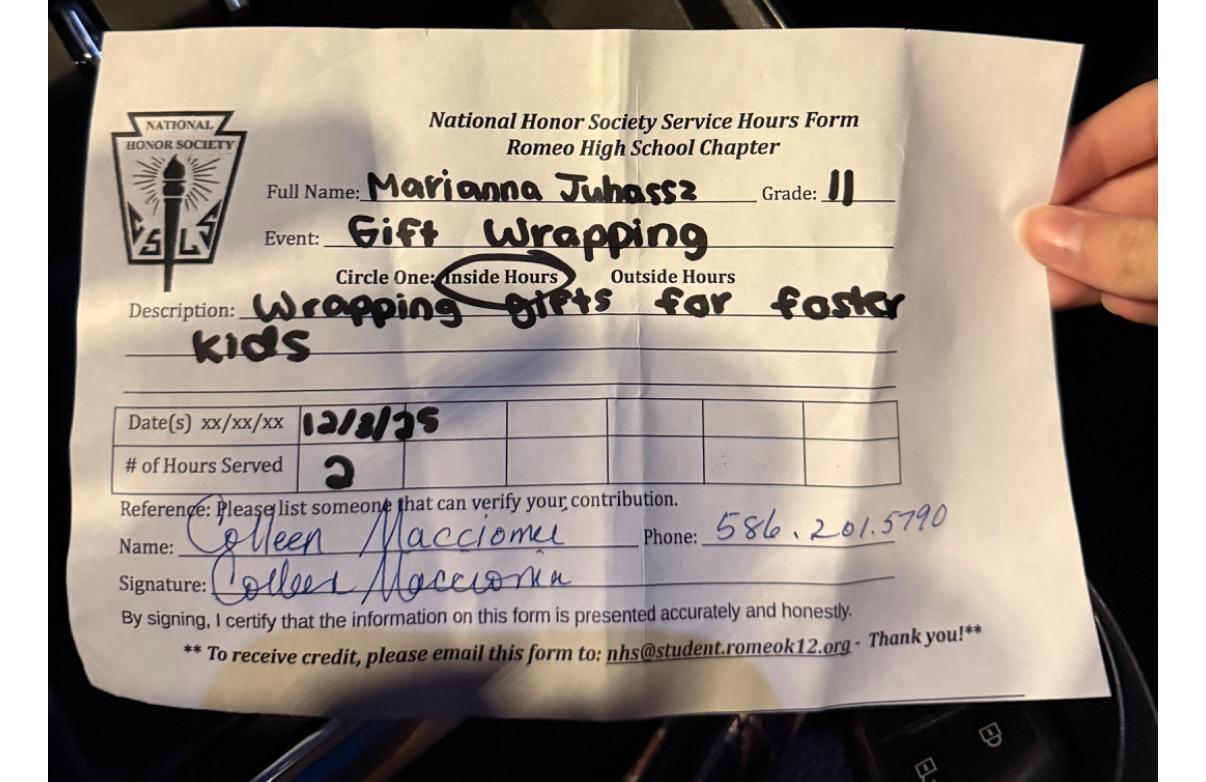 NATIONAL
HONOR SOCIETY
C S L S
National Honor Society Service Hours Form
Romeo High School Chapter
Full Name: Marianna Juhassz Grade: 11
Event: Gift Wrapping
Circle One: Inside Hours Outside Hours
Description: Wrapping gifts for foster
kids
Date(s) xx/xx/xx 12/3/25
# of Hours Served 2
Reference: Please list someone that can verify your contribution.
Name: Colleen Phone: 586.201.5790
Signature: Colleen
By signing, I certify that the information on this form is presented accurately and honestly.
** To receive credit, please email this form to: nhs@student.romeok12.org - Thank you!**